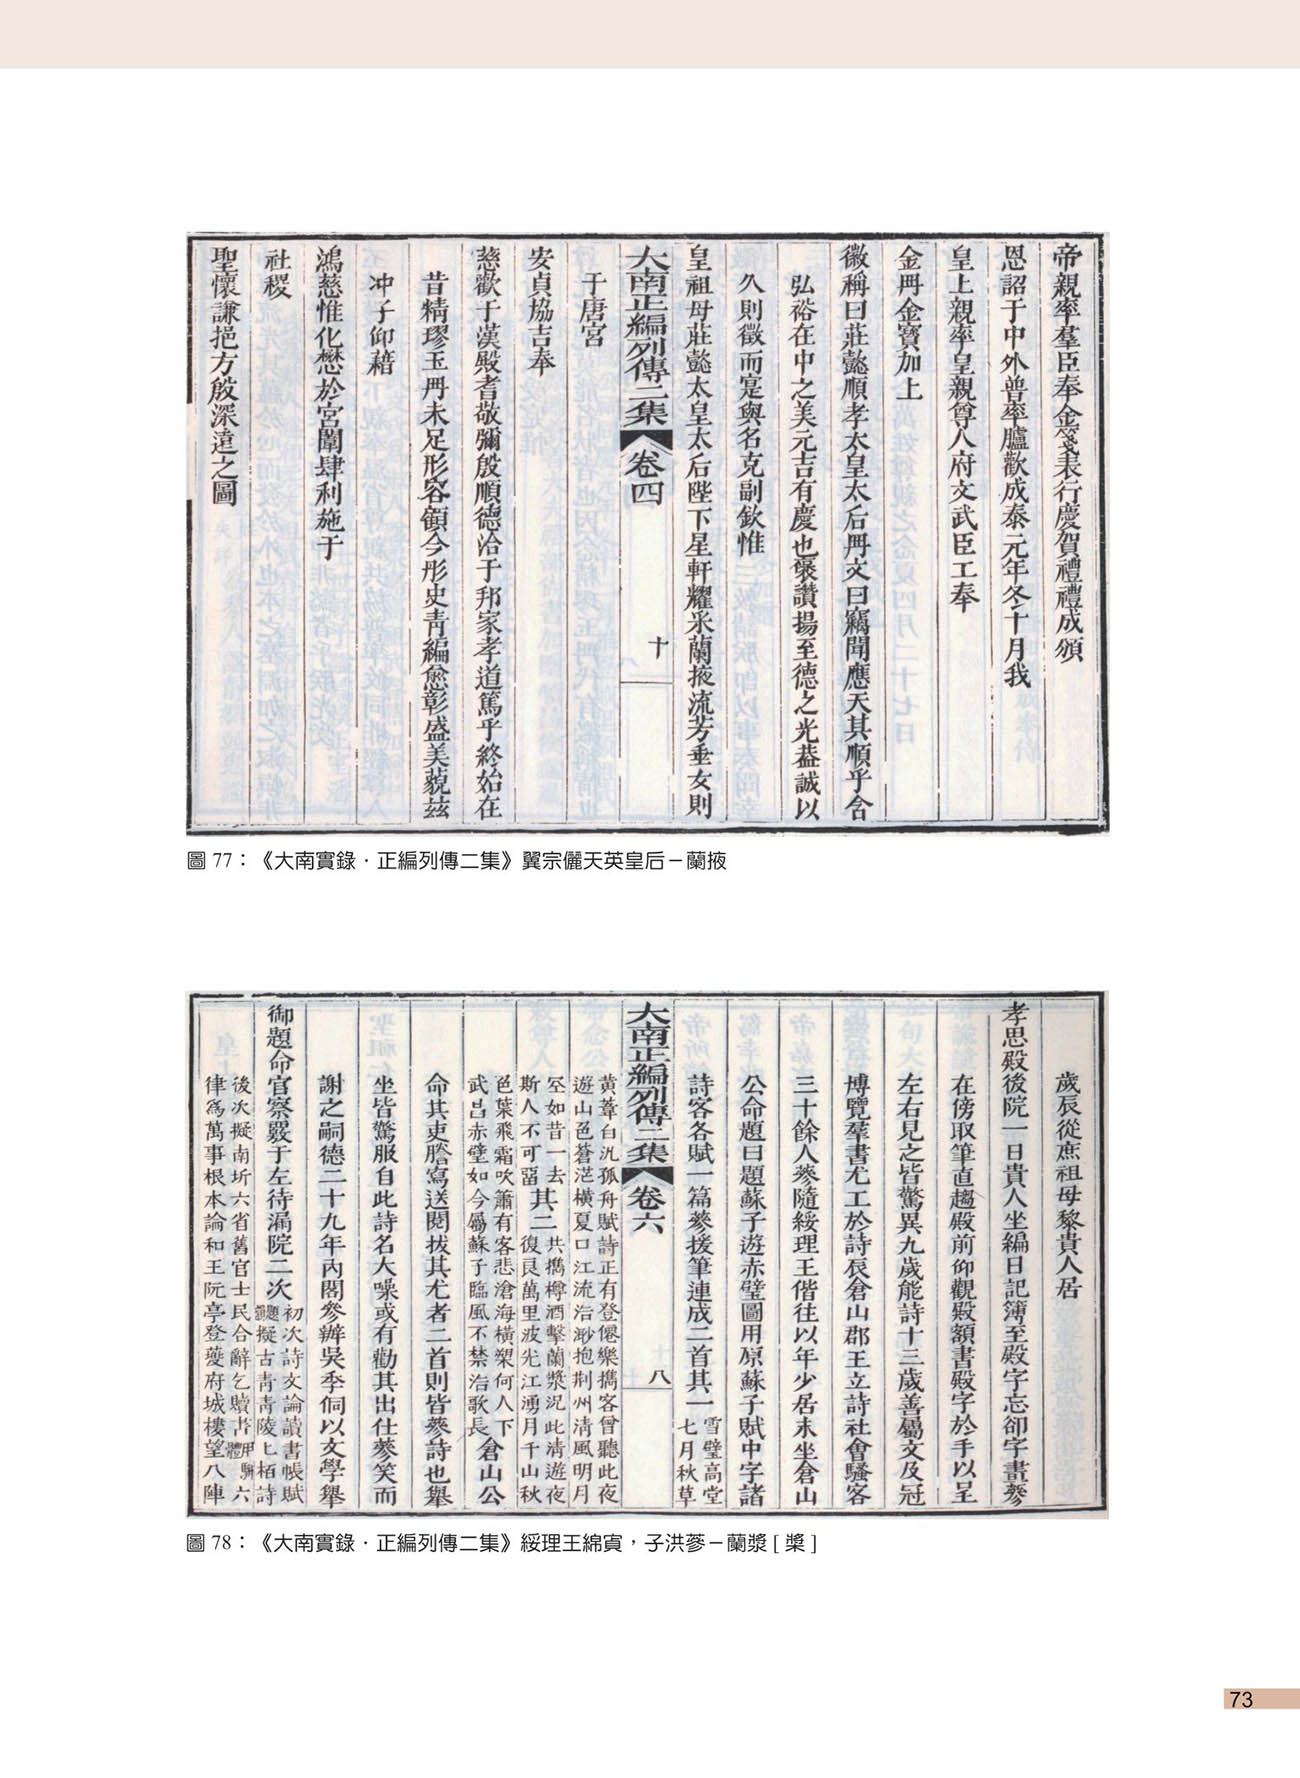 帝親率羣臣奉金箋表行慶賀禮禮成頒
恩詔于中外普率臚歡成泰元年冬十月我
皇上親率皇親尊人府文武臣工奉
金冊金寶加上
徽稱曰莊懿順孝太皇太后冊文曰竊聞應天其順乎含
弘裕在中之美元吉有慶也褒讚揚至德之光葢誠以
久則徵而寔與名克副欽惟
皇祖母莊懿太皇太后陛下星軒耀采蘭掖流芳垂女則
大南正編列傳二集 卷四 十
于唐宮
安貞協吉奉
慈歡于漢殿耆敬彌殷順德洽于邦家孝道篤乎終始在
昔精璆玉冊未足形容顧今彤史青編愈彰盛美藐兹
冲子仰藉
鴻慈惟化懋於宮闈肆利施于
社稷
聖懷謙挹方殷深遠之圖
圖 77：《大南實錄．正編列傳二集》翼宗儷天英皇后－蘭掖
歲辰從庶祖母黎貴人居
孝思殿後院一日貴人坐編日記簿至殿字忘卻字畫蔘
在傍取筆直趨殿前仰觀殿額書殿字於手以呈
左右見之皆驚異九歲能詩十三歲善屬文及冠
博覽羣書尤工於詩辰倉山郡王立詩社會騷客
三十餘人蔘隨綏理王偕往以年少居末坐倉山
公命題曰題蘇子遊赤壁圖用原蘇子賦中字諸
詩客各賦一篇蔘援筆連成二首其一雪壁高堂七月秋草
大南正編列傳二集 卷六 八
黃葦白氿孤舟賦詩正有登僊樂擕客曾聽此夜
遊山邑蒼茫橫夏口江流浩渺抱荆州淸風明月
罙如昔一去其二共擕樽酒擊蘭漿況此清遊夜
斯人不可畱復艮萬里波光江湧月千山秋
色葉飛霜吹簫有客悲滄海橫槊何人下
武昌赤壁如今屬蘇子臨風不禁浩歌長倉山公
命其吏謄寫送閱拔其尤者二首則皆蔘詩也舉
坐皆驚服自此詩名大噪或有勸其出仕蔘笑而
謝之嗣德二十九年內閣參辦吳季侗以文學舉
御題命官察覈于左待漏院二次初次詩文論讀書帳賦題擬古青青陵上栢詩
後次擬南圻六省舊官士民合辭乞贖六
律爲萬事根本論和王阮亭登夔府城樓望八陣
圖 78：《大南實錄．正編列傳二集》綏理王綿寊，子洪蔘－蘭漿 [ 槳 ]
73